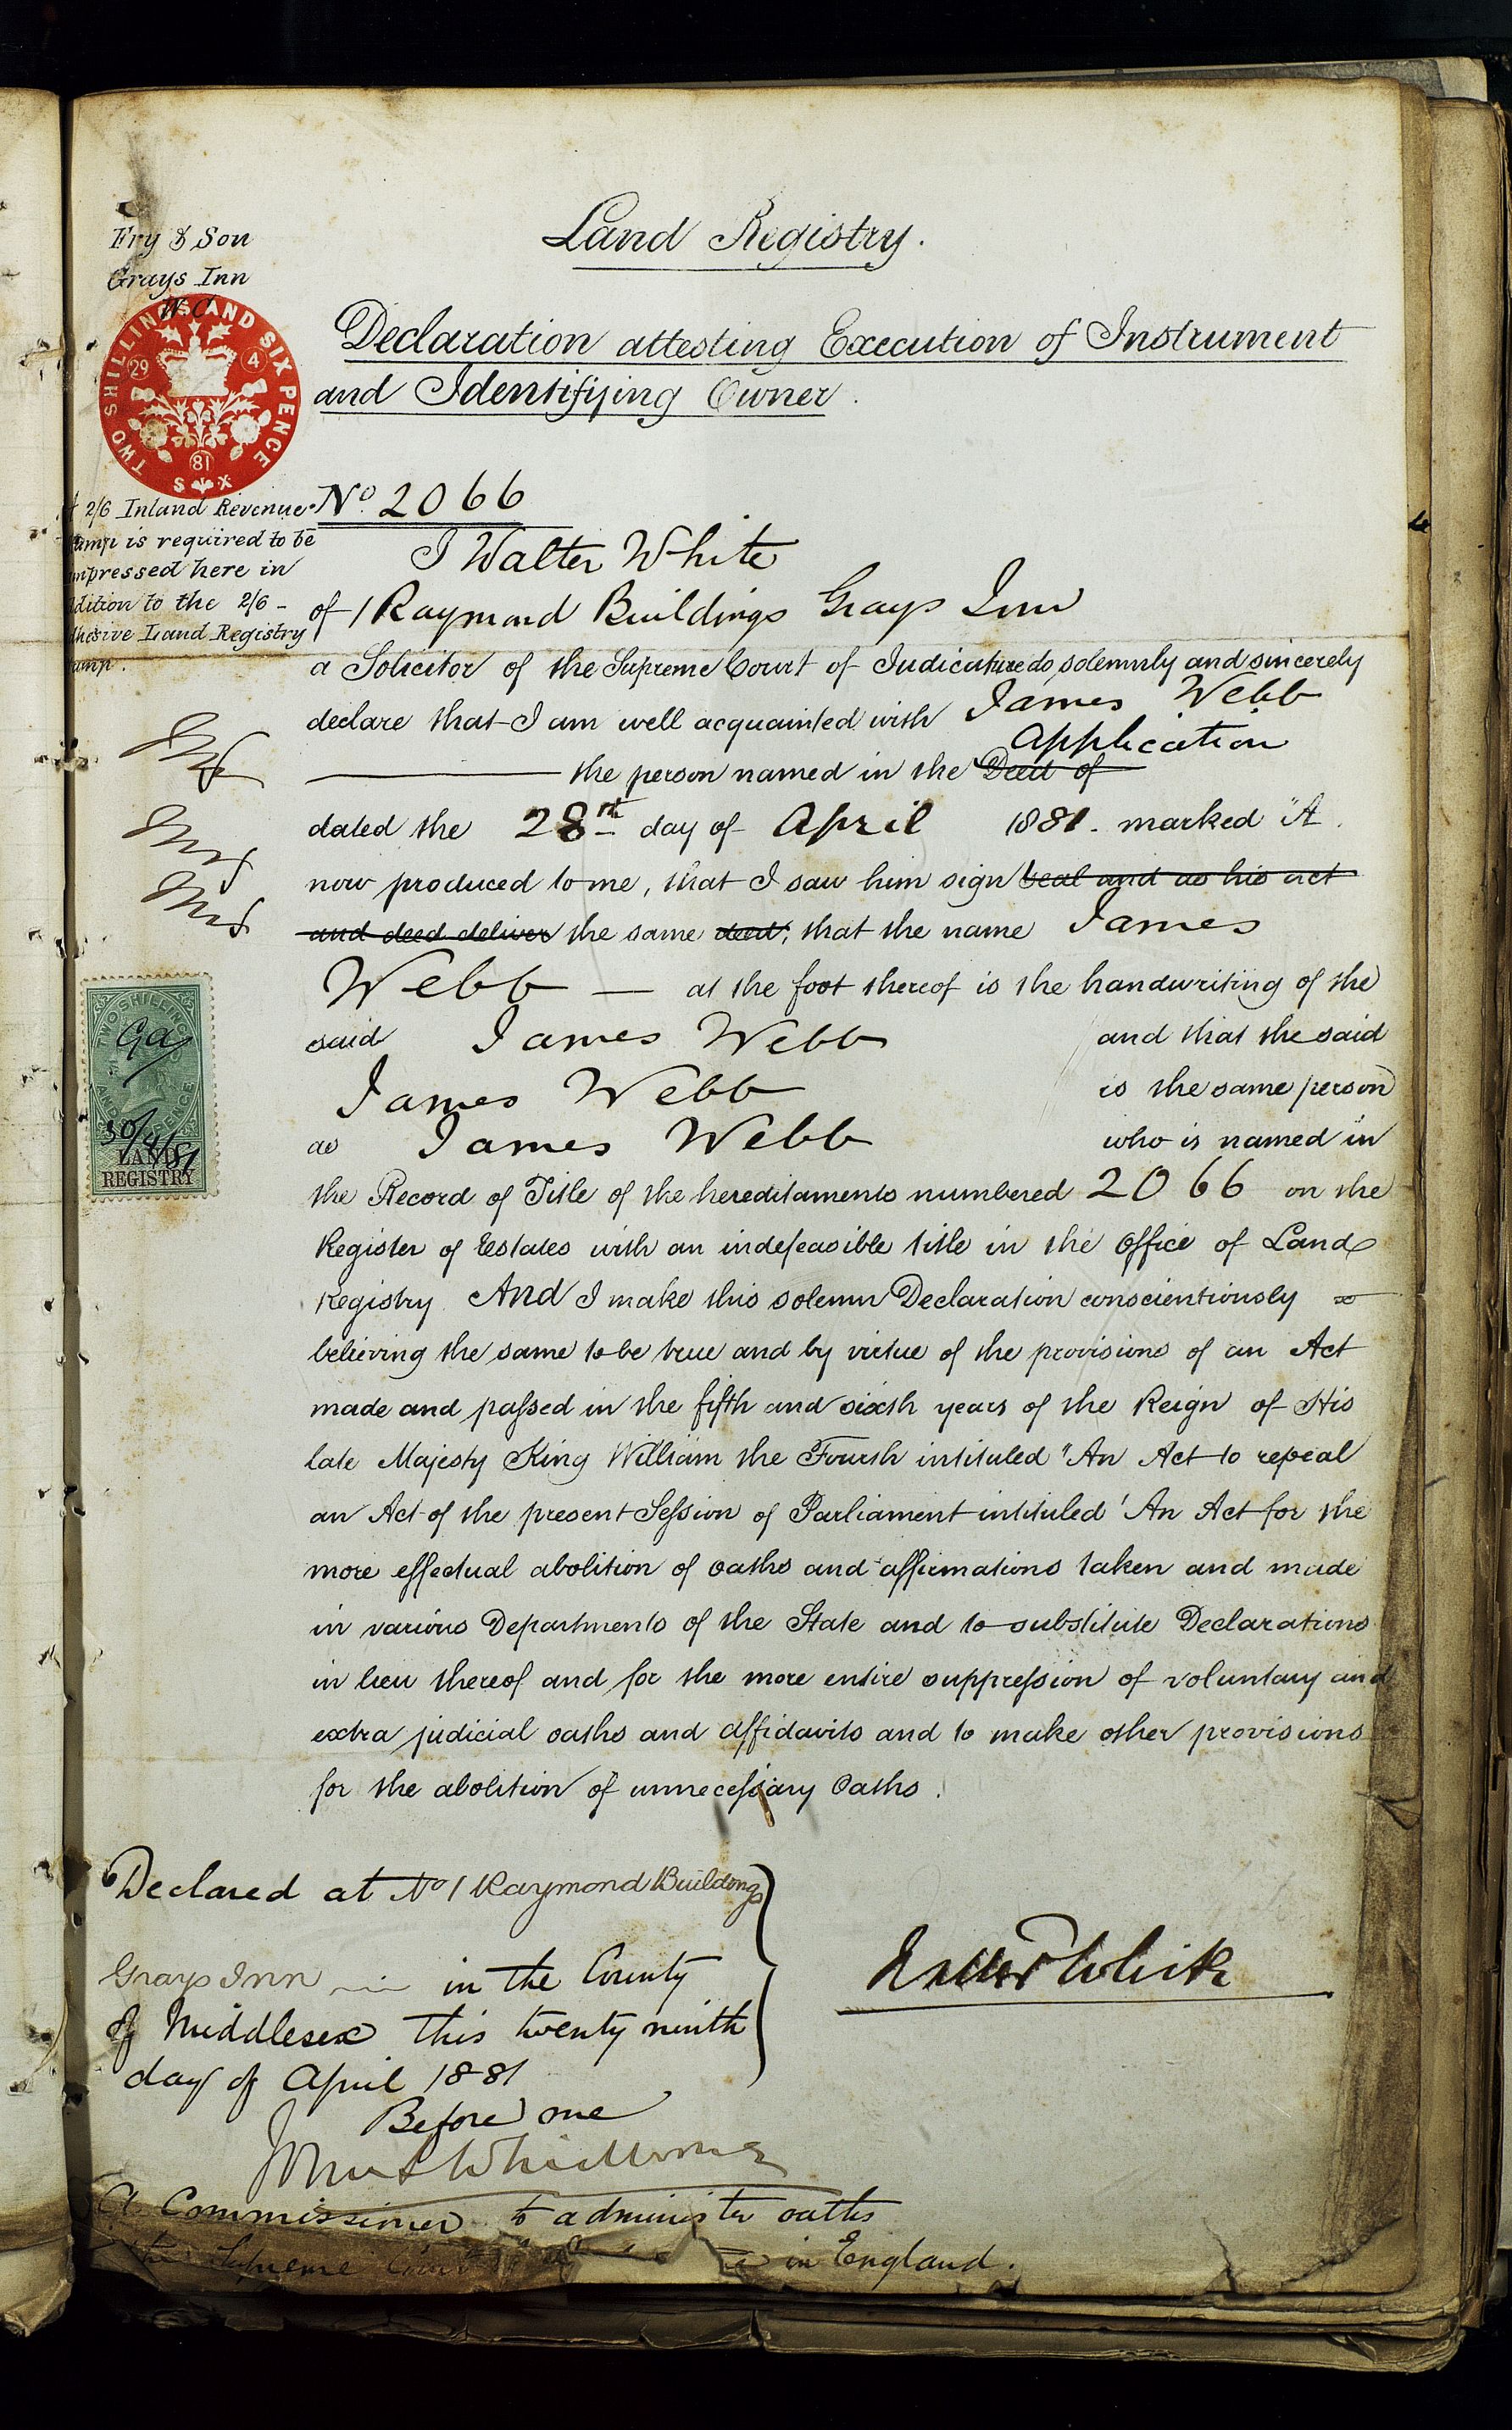 Fry & Son
Grays Inn
W.C.
TWO SHILLINGS AND SIX PENCE
29 4
81
S X
2/6 Inland Revenue
is required to be
here in
to the 2/6 -
Land Registry
Land Registry.
Declaration attesting Execution of Instrument
and Identifying Owner.
No. 2066
I Walter White
of 1 Raymond Buildings Grays Inn
a Solicitor of the Supreme Court of Judicature do solemnly and sincerely
declare that I am well acquainted with James Webb
Application
the person named in the Deed of
dated the 28th day of April 1881. marked "A
now produced to me, that I saw him sign seal and as his act
and deed deliver the same deed, that the name James
Webb — at the foot thereof is the handwriting of the
said James Webb and that the said
James Webb is the same person
as James Webb who is named in
the Record of Title of the hereditaments numbered 2066 on the
Register of Estates with an indefeasible title in the Office of Land
Registry And I make this solemn Declaration conscientiously
believing the same to be true and by virtue of the provisions of an Act
made and passed in the fifth and sixth years of the Reign of His
late Majesty King William the Fourth intituled "An Act to repeal
an Act of the present Session of Parliament intituled 'An Act for the
more effectual abolition of oaths and affirmations taken and made
in various Departments of the State and to substitute Declarations
in lieu thereof and for the more entire suppression of voluntary and
extra judicial oaths and affidavits and to make other provisions
for the abolition of unnecessary Oaths.
TWO SHILLINGS
AND PENCE
30/4/81
LAND
REGISTRY
Declared at No 1 Raymond Buildings
Grays Inn in the County
of Middlesex this twenty ninth
day of April 1881
Walter White
Before me
A Commissioner to administer oaths
Supreme Court in England.